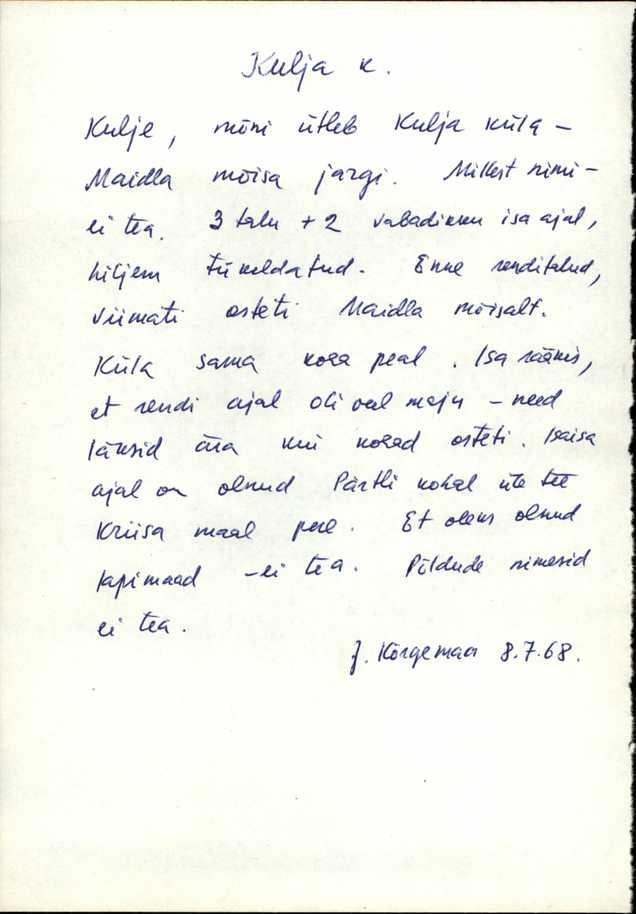 Kulja k.
Kulje, mõni ütleb Kulja küla –
Maidla mõisa järgi. Millest nimi –
ei tea. 3 talu + 2 vabadikku isa ajal,
hiljem tükeldatud. Enne renditalud,
viimati osteti Maidla mõisalt.
Küla sama koha peal. Isa rääkis,
et rendi ajal oli veel maju – need
läksid ära kui kohad osteti. Isaisa
ajal on olnud Pärtli kohal üle tee
Kriisa maal pere. Et oleks olnud
lapimaad – ei tea. Põldude nimesid
ei tea.
J. Kõrgemaa 8.7.68.